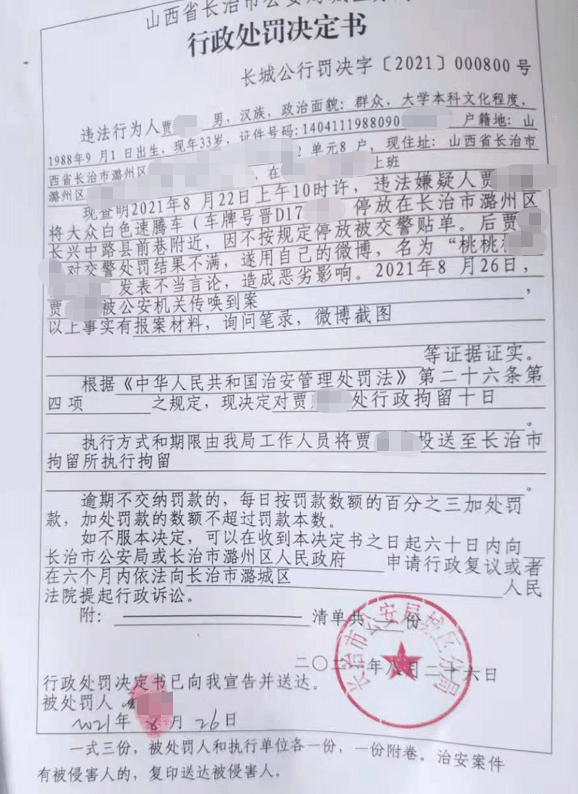 山西省长治市公安局城区分局
行政处罚决定书
长城公行罚决字〔2021〕000800号
违法行为人贾 男，汉族，政治面貌：群众，大学本科文化程度，
1988年9月1日出生，现年33岁，证件号码：1404111988090 户籍地：山
西省长治市潞州区 单元8户，现住址：山西省长治市
潞州区 在 上班
现查明2021年8月22日上午10时许，违法嫌疑人贾
将大众白色速腾车（车牌号晋D17 停放在长治市潞州区
长兴中路县前巷附近，因不按规定停放被交警贴单。后贾
对交警处罚结果不满，遂用自己的微博，名为“桃桃
发表不当言论，造成恶劣影响。2021年8月26日，
贾 被公安机关传唤到案
以上事实有报案材料，询问笔录，微博截图
等证据证实。
根据《中华人民共和国治安管理处罚法》第二十六条第
四项 之规定，现决定对贾 处行政拘留十日
。
执行方式和期限由我局工作人员将贾 投送至长治市
拘留所执行拘留
。
逾期不交纳罚款的，每日按罚款数额的百分之三加处罚
款，加处罚款的数额不超过罚款本数。
如不服本决定，可以在收到本决定书之日起六十日内向
长治市公安局或长治市潞州区人民政府 申请行政复议或者
在六个月内依法向长治市潞城区 人民
法院提起行政诉讼。
附： 清单共 份
长治市公安局城区分局
二〇二一年八月二十六日
行政处罚决定书已向我宣告并送达。
被处罚人
2021年8月26日
一式三份，被处罚人和执行单位各一份，一份附卷。治安案件
有被侵害人的，复印送达被侵害人。